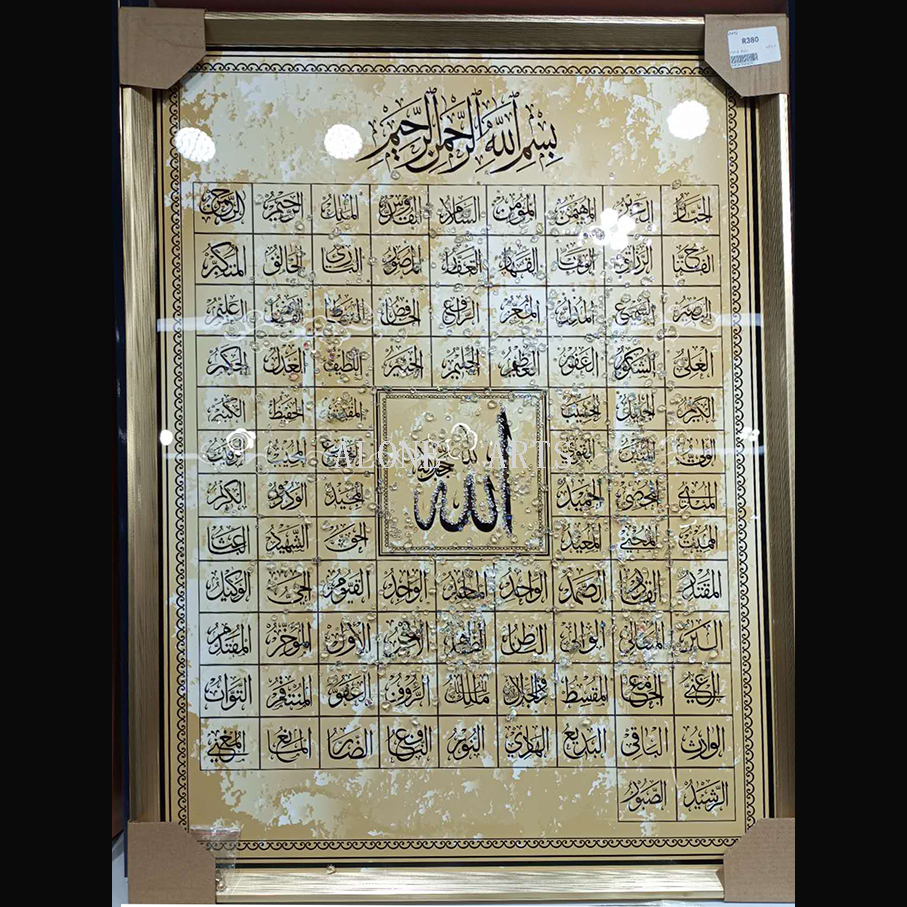 R380
بسم الله الرحمن الرحيم
الرحمن الرحيم الملك القدوس السلام المؤمن المهيمن العزيز الجبار
المتكبر الخالق البارئ المصور الغفار القهار الوهاب الرزاق الفتاح
العليم القابض الباسط الخافض الرافع المعز المذل السميع البصير
الحكم العدل اللطيف الخبير الحليم العظيم الغفور الشكور العلي
الكبير الحفيظ المقيت الحسيب الجليل
الرقيب المجيب الواسع القوي المتين
الودود المجيد الحميد المحصي
الباعث الشهيد الحق المعيد المحيي المميت
الله جل جلاله
ALONE ARTS
الوكيل الحي القيوم الواجد الماجد الواحد الصمد القادر المقتدر
المقدم المؤخر الأول الآخر الظاهر الباطن الوالي المتعالي البر
التواب المنتقم العفو الرؤوف مالك الملك ذو الجلال المقسط الجامع الغني
المغني المانع الضار النافع النور الهادي البديع الباقي الوارث
الرشيد الصبور